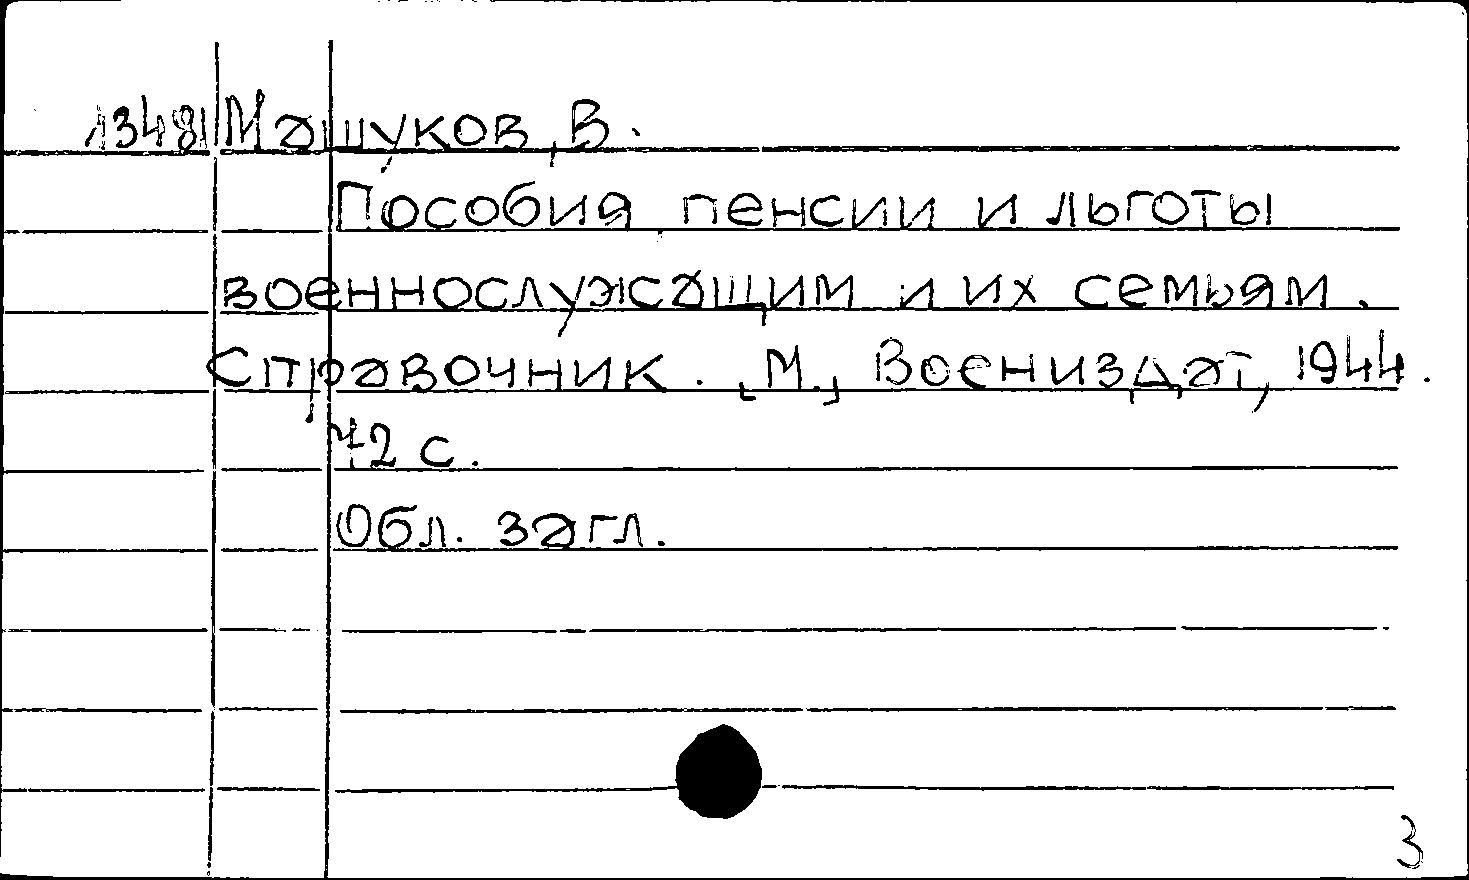 13481 Машуков, В.
Пособия пенсии и льготы
военнослужащим и их семьям.
Справочник. [М.], Воениздат, 1944.
72 с.
Обл. загл.
3